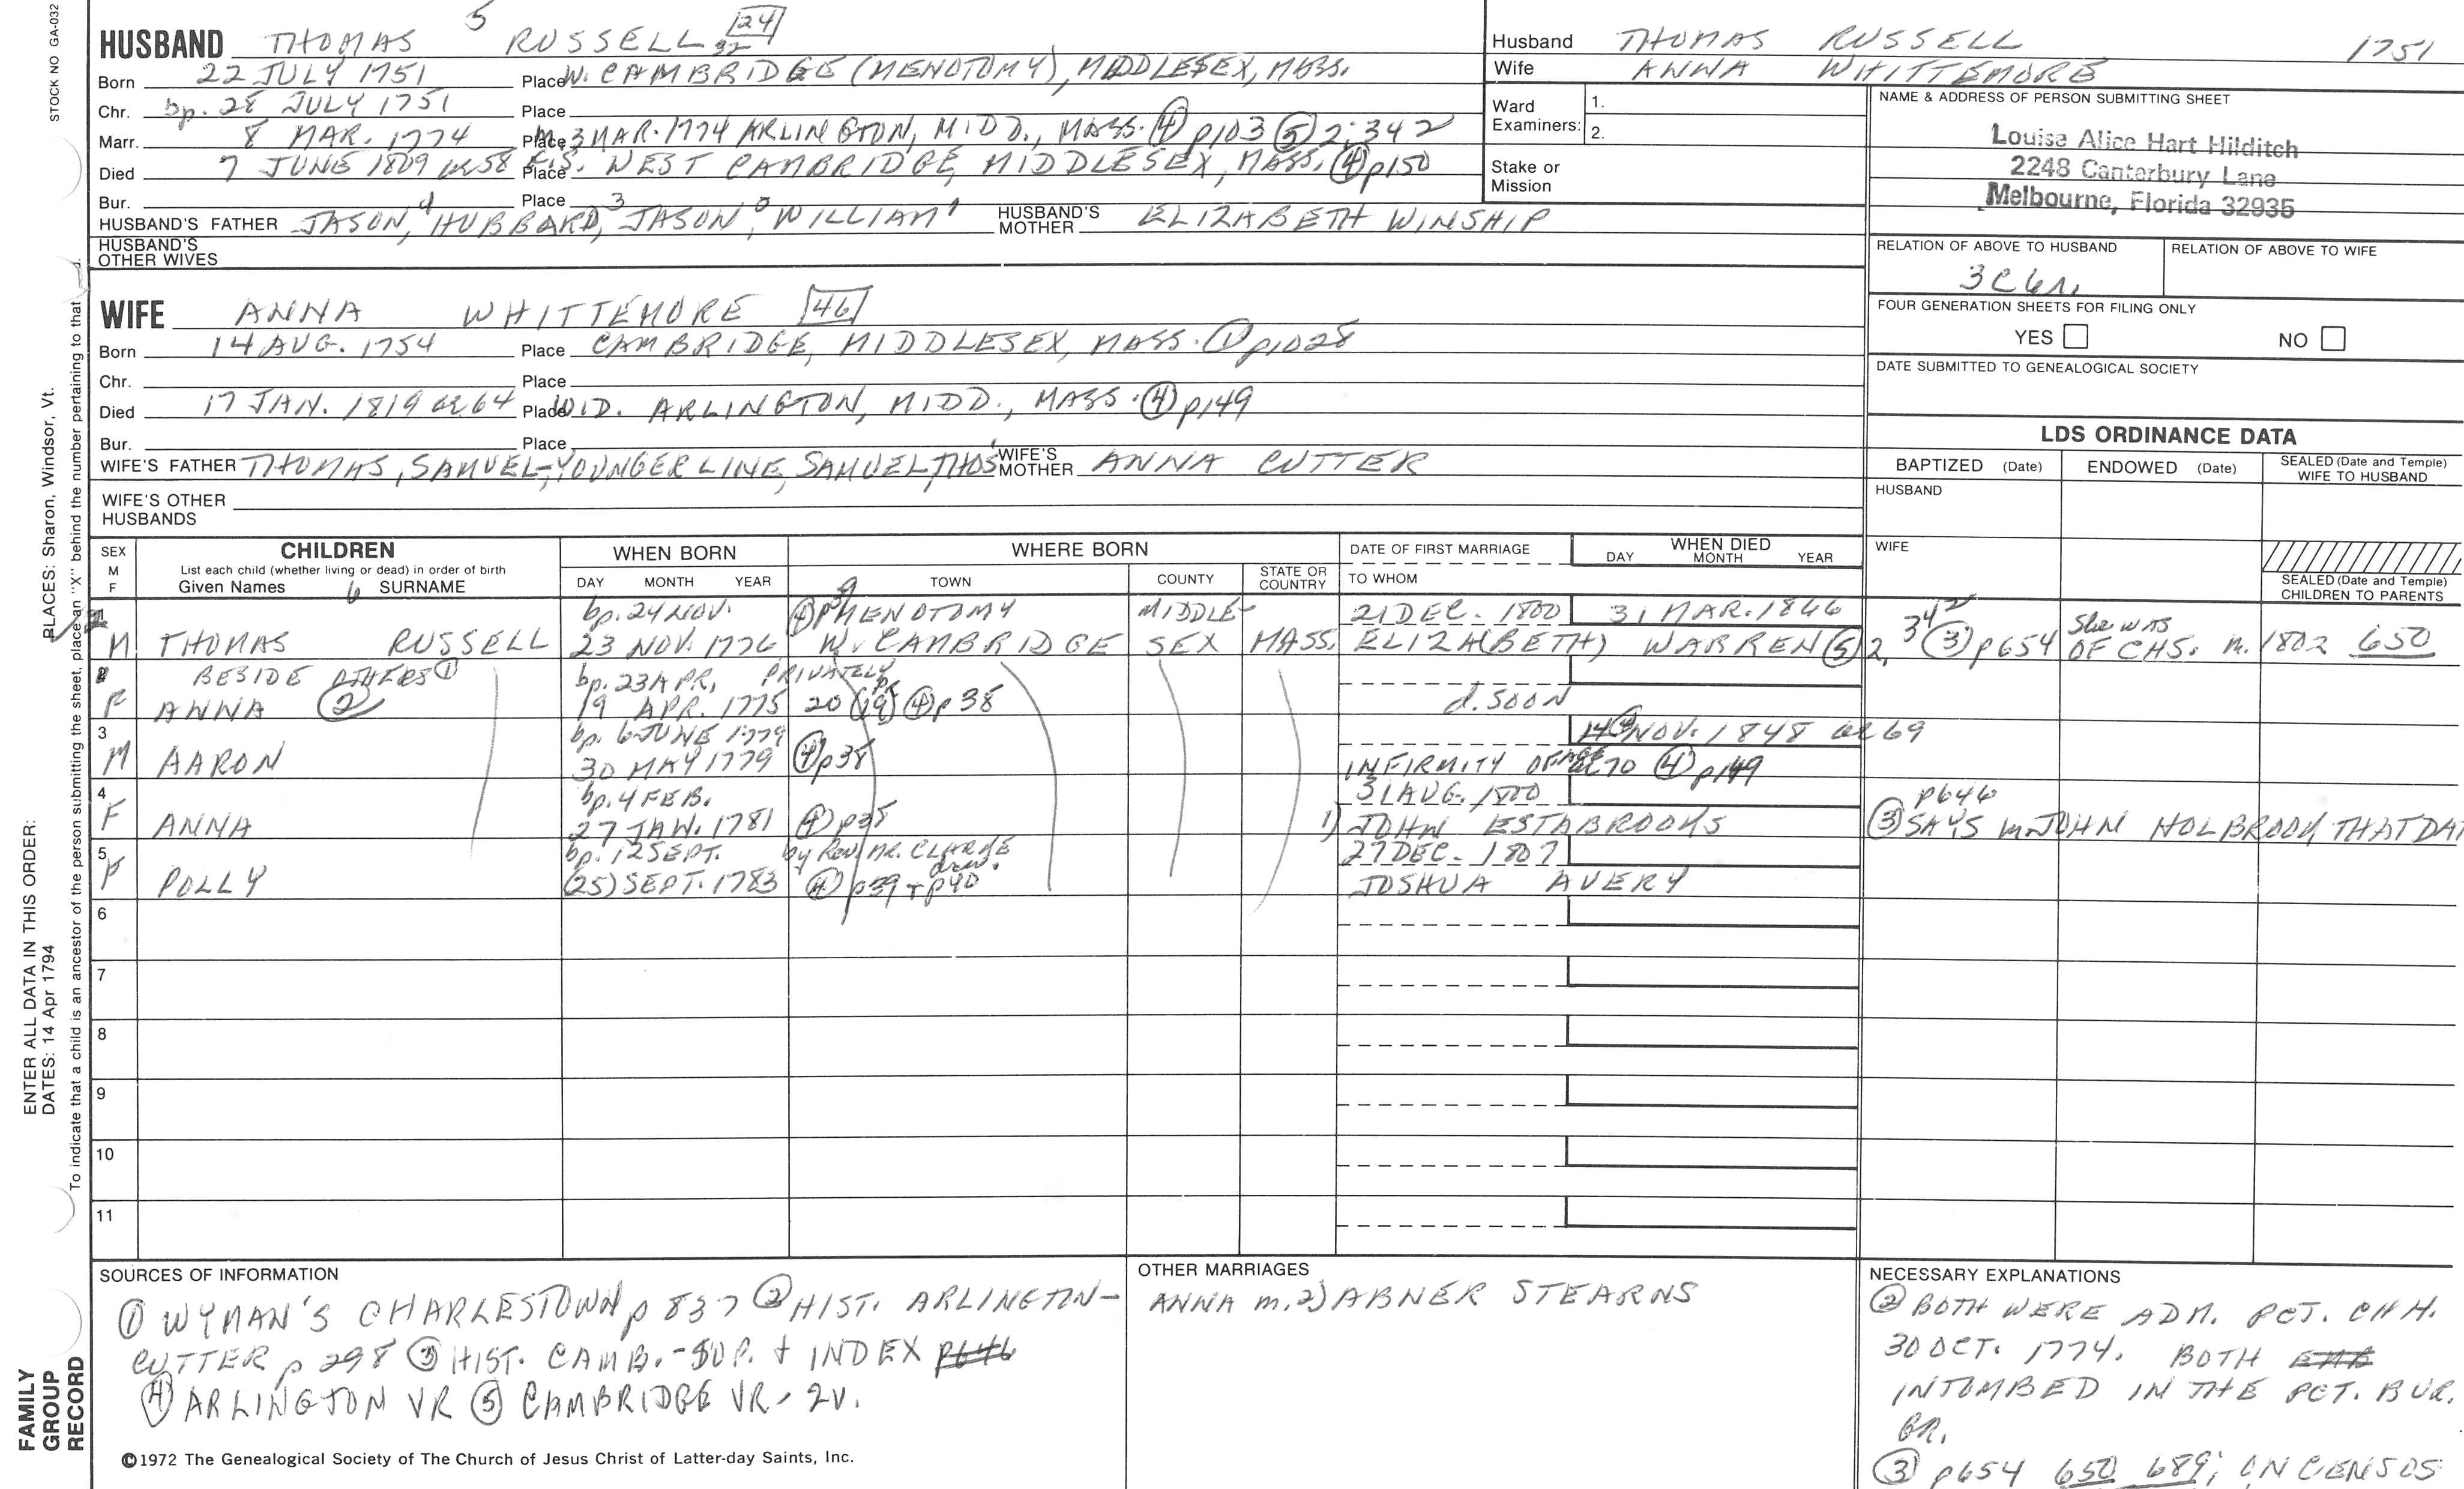 STOCK NO GA-032
PLACES: Sharon, Windsor, Vt.
ENTER ALL DATA IN THIS ORDER:
DATES: 14 Apr 1794
To indicate that a child is an ancestor of the person submitting the sheet, place an "X" behind the number pertaining to that
FAMILY
GROUP
RECORD
HUSBAND THOMAS 5 RUSSELL 32 24
Born 22 JULY 1751 Place W. CAMBRIDGE (MENOTOMY), MIDDLESEX, MASS.
Chr. bp. 28 JULY 1751 Place
Marr. 8 MAR. 1774 Place m. 3 MAR. 1774 ARLINGTON, MIDD., MASS. ④ p103 ⑤ 2:342
Died 7 JUNE 1809 ae 58 Place WEST CAMBRIDGE, MIDDLESEX, MASS. ④ p150
Bur. Place
HUSBAND'S FATHER JASON 4, HUBBARD 3, JASON 2, WILLIAM 1 HUSBAND'S MOTHER ELIZABETH WINSHIP
HUSBAND'S
OTHER WIVES
Husband THOMAS RUSSELL 1751
Wife ANNA WHITTEMORE
Ward
Examiners: 1.
2.
Stake or
Mission
NAME & ADDRESS OF PERSON SUBMITTING SHEET
Louise Alice Hart Hilditch
2248 Canterbury Lane
Melbourne, Florida 32935
RELATION OF ABOVE TO HUSBAND RELATION OF ABOVE TO WIFE
3C6r.
FOUR GENERATION SHEETS FOR FILING ONLY
YES NO
DATE SUBMITTED TO GENEALOGICAL SOCIETY
WIFE ANNA WHITTEMORE 46
Born 14 AUG. 1754 Place CAMBRIDGE, MIDDLESEX, MASS. ① p1028
Chr. Place
Died 17 JAN. 1819 ae 64 Place WID. ARLINGTON, MIDD., MASS. ④ p149
Bur. Place
WIFE'S FATHER THOMAS, SAMUEL-YOUNGER LINE, SAMUEL, THOS' WIFE'S MOTHER ANNA CUTTER
WIFE'S OTHER
HUSBANDS
LDS ORDINANCE DATA
BAPTIZED (Date) ENDOWED (Date) SEALED (Date and Temple)
WIFE TO HUSBAND
HUSBAND
WIFE
SEALED (Date and Temple)
CHILDREN TO PARENTS
SEX
M
F
CHILDREN
List each child (whether living or dead) in order of birth
Given Names 6 SURNAME
WHEN BORN
DAY MONTH YEAR
WHERE BORN
TOWN COUNTY STATE OR COUNTRY
DATE OF FIRST MARRIAGE
TO WHOM
WHEN DIED
DAY MONTH YEAR
bp. 24 NOV. ④ p39 MENOTOMY MIDDLE- 21 DEC. 1800 31 MAR. 1866
M THOMAS RUSSELL 23 NOV. 1776 W. CAMBRIDGE SEX MASS. ELIZA(BETH) WARREN ⑤ 2, 342 ③ p654 She was OF CHS. m. 1802 650
BESIDE OTHERS ① bp. 23 APR. PRIVATELY
F ANNA ② 19 APR. 1775 20 (19) ④ p38 d. SOON
3 bp. 6 JUNE 1779 14 NOV. 1848 ae 69
M AARON 30 MAY 1779 ④ p38 INFIRMITY OF AGE ae 70 ④ p149
4 bp. 4 FEB. 31 AUG. 1800 p646
F ANNA 27 JAN. 1781 ④ p38 1) JOHN ESTABROOKS ③ SAYS m. JOHN HOLBROOK THAT DAT
5 bp. 12 SEPT. by Rev. Mr. CLARKE 27 DEC. 1807
F POLLY (25) SEPT. 1783 ④ p39 + p40 JOSHUA AVERY
6
7
8
9
10
11
SOURCES OF INFORMATION
① WYMAN'S CHARLESTOWN p 837 ② HIST. ARLINGTON-
CUTTER p 298 ③ HIST. CAMB.-SUP. + INDEX p646
④ ARLINGTON VR ⑤ CAMBRIDGE VR. 2V.
©1972 The Genealogical Society of The Church of Jesus Christ of Latter-day Saints, Inc.
OTHER MARRIAGES
ANNA m. 2) ABNER STEARNS
NECESSARY EXPLANATIONS
② BOTH WERE ADM. PCT. CHH.
30 OCT. 1774. BOTH
INTOMBED IN THE PCT. BUR.
GR.
③ p654 650 689; IN CENSUS